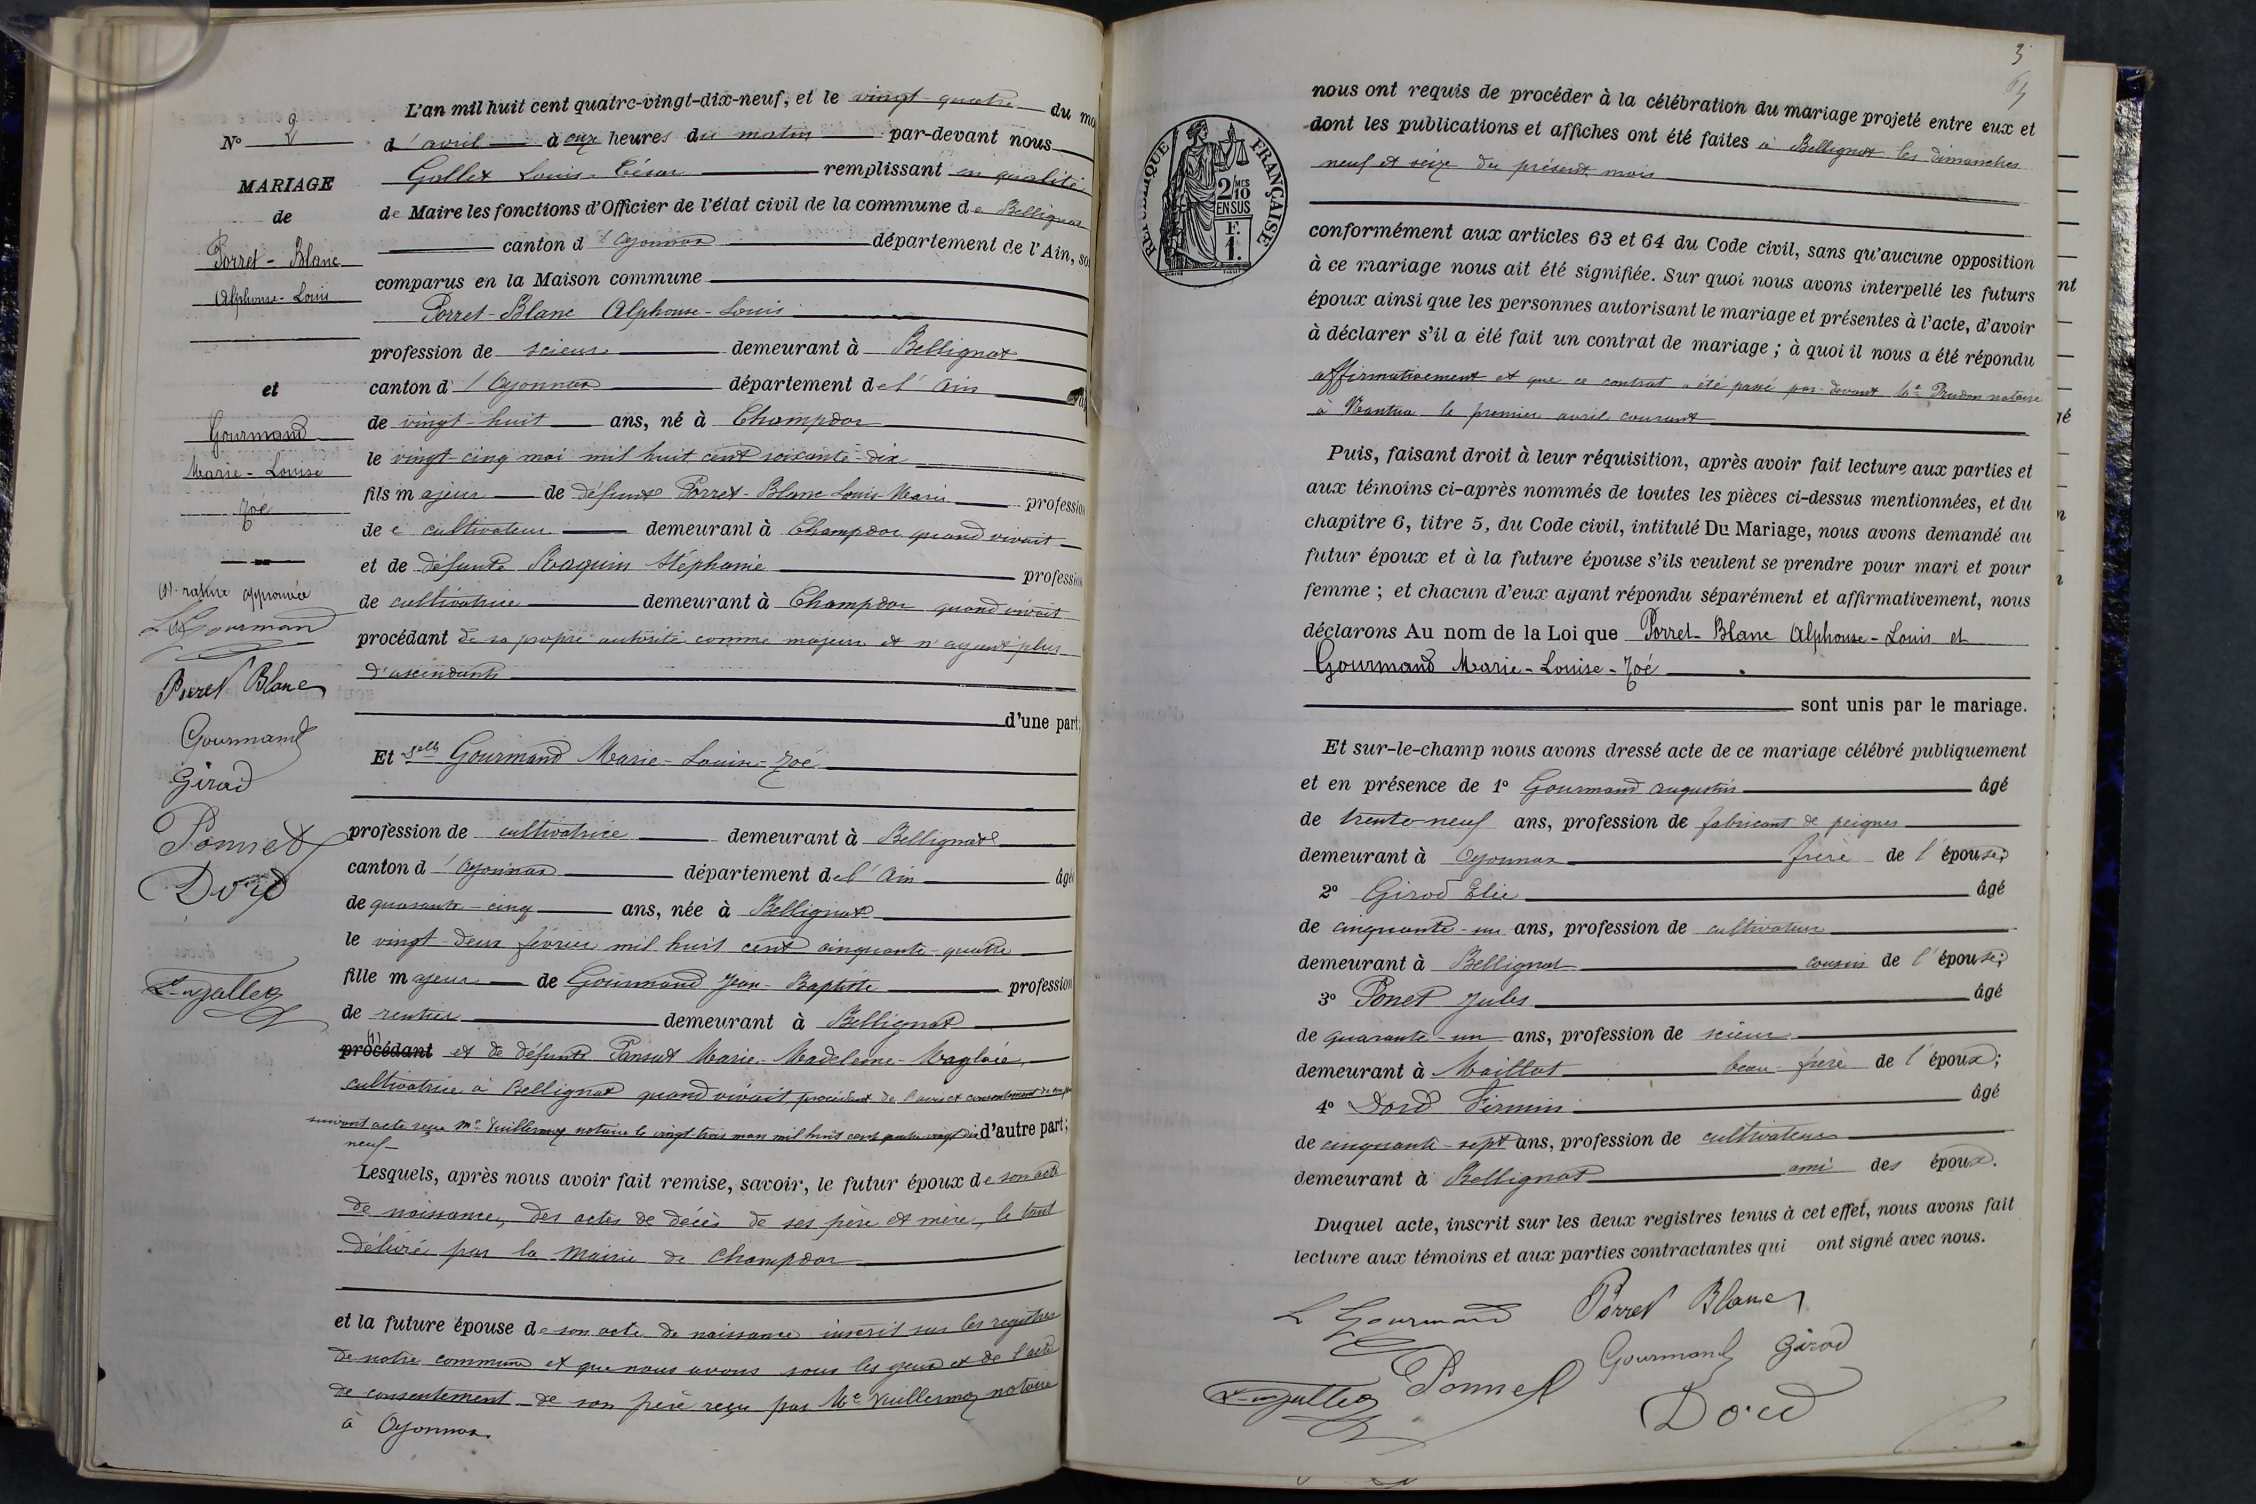 N° 2
MARIAGE
de
Porret - Blanc
Alphonse - Louis
et
Gourmand
Marie - Louise
Zoé
(1) rature approuvée
L Gourmand
Porret Blanc
Gourmand
Girod
Ponnet
Dord
L. Gallet
L'an mil huit cent quatre-vingt-dix-neuf, et le vingt-quatre du mo
d'avril à onze heures du matin par-devant nous
Gallet Louis-César remplissant en qualité
de Maire les fonctions d'Officier de l'état civil de la commune de Bellignat
canton d'Oyonnax département de l'Ain, so
comparus en la Maison commune
Porret-Blanc Alphonse-Louis
profession de scieur demeurant à Bellignat
canton d'Oyonnax département de l'Ain
de vingt-huit ans, né à Champdor
le vingt-cinq mai mil huit cent soixante-dix
fils majeur de défunt Porret-Blanc Louis Marie profession
de cultivateur demeurant à Champdor quand vivait
et de défunte Stéphanie profession
de cultivatrice demeurant à Champdor quand vivait
procédant de sa propre autorité comme majeur et n'ayant plus
d'ascendants
d'une part;
Et Delle Gourmand Marie-Louise-Zoé
profession de cultivatrice demeurant à Bellignat
canton d'Oyonnax département de l'Ain âgée
de quarante-cinq ans, née à Bellignat
le vingt-deux février mil huit cent cinquante-quatre
fille majeure de Gourmand Jean-Baptiste profession
de rentier demeurant à Bellignat
(1) procédant et de défunte Pansut Marie-Madeleine-Magloire,
cultivatrice à Bellignat quand vivait, procédant de l'avis et consentement de son père
suivant acte reçu Me Vuillermoz notaire le vingt trois mars mil huit cent quatre vingt dix d'autre part;
neuf
Lesquels, après nous avoir fait remise, savoir, le futur époux de son acte
de naissance, des actes de décès de ses père et mère, le tout
délivré par la Mairie de Champdor
et la future épouse de son acte de naissance inscrit sur les registres
de notre commune et que nous avons sous les yeux et de l'acte
de consentement de son père reçu par Me Vuillermoz notaire
à Oyonnax.
3
RÉPUBLIQUE FRANÇAISE
2/10 MES
EN SUS
F.
1.
nous ont requis de procéder à la célébration du mariage projeté entre eux et
dont les publications et affiches ont été faites à Bellignat les dimanches
neuf et seize du présent mois
conformément aux articles 63 et 64 du Code civil, sans qu'aucune opposition
à ce mariage nous ait été signifiée. Sur quoi nous avons interpellé les futurs
époux ainsi que les personnes autorisant le mariage et présentes à l'acte, d'avoir
à déclarer s'il a été fait un contrat de mariage; à quoi il nous a été répondu
affirmativement et que ce contrat a été passé par devant Me Prudon notaire
à Nantua le premier avril courant
Puis, faisant droit à leur réquisition, après avoir fait lecture aux parties et
aux témoins ci-après nommés de toutes les pièces ci-dessus mentionnées, et du
chapitre 6, titre 5, du Code civil, intitulé Du Mariage, nous avons demandé au
futur époux et à la future épouse s'ils veulent se prendre pour mari et pour
femme; et chacun d'eux ayant répondu séparément et affirmativement, nous
déclarons Au nom de la Loi que Porret-Blanc Alphonse-Louis et
Gourmand Marie-Louise-Zoé
sont unis par le mariage.
Et sur-le-champ nous avons dressé acte de ce mariage célébré publiquement
et en présence de 1° Gourmand Augustin âgé
de trente-neuf ans, profession de fabricant de peignes
demeurant à Oyonnax frère de l'épouse;
2° Girod Elie âgé
de cinquante-un ans, profession de cultivateur
demeurant à Bellignat cousin de l'épouse;
3° Ponet Jules âgé
de quarante-un ans, profession de scieur
demeurant à Maillat beau-frère de l'époux;
4° Dord Firmin âgé
de cinquante-sept ans, profession de cultivateur
demeurant à Bellignat ami des époux.
Duquel acte, inscrit sur les deux registres tenus à cet effet, nous avons fait
lecture aux témoins et aux parties contractantes qui ont signé avec nous.
L Gourmand Porret Blanc
Gourmand Girod
L. Gallet Ponnet
Dord